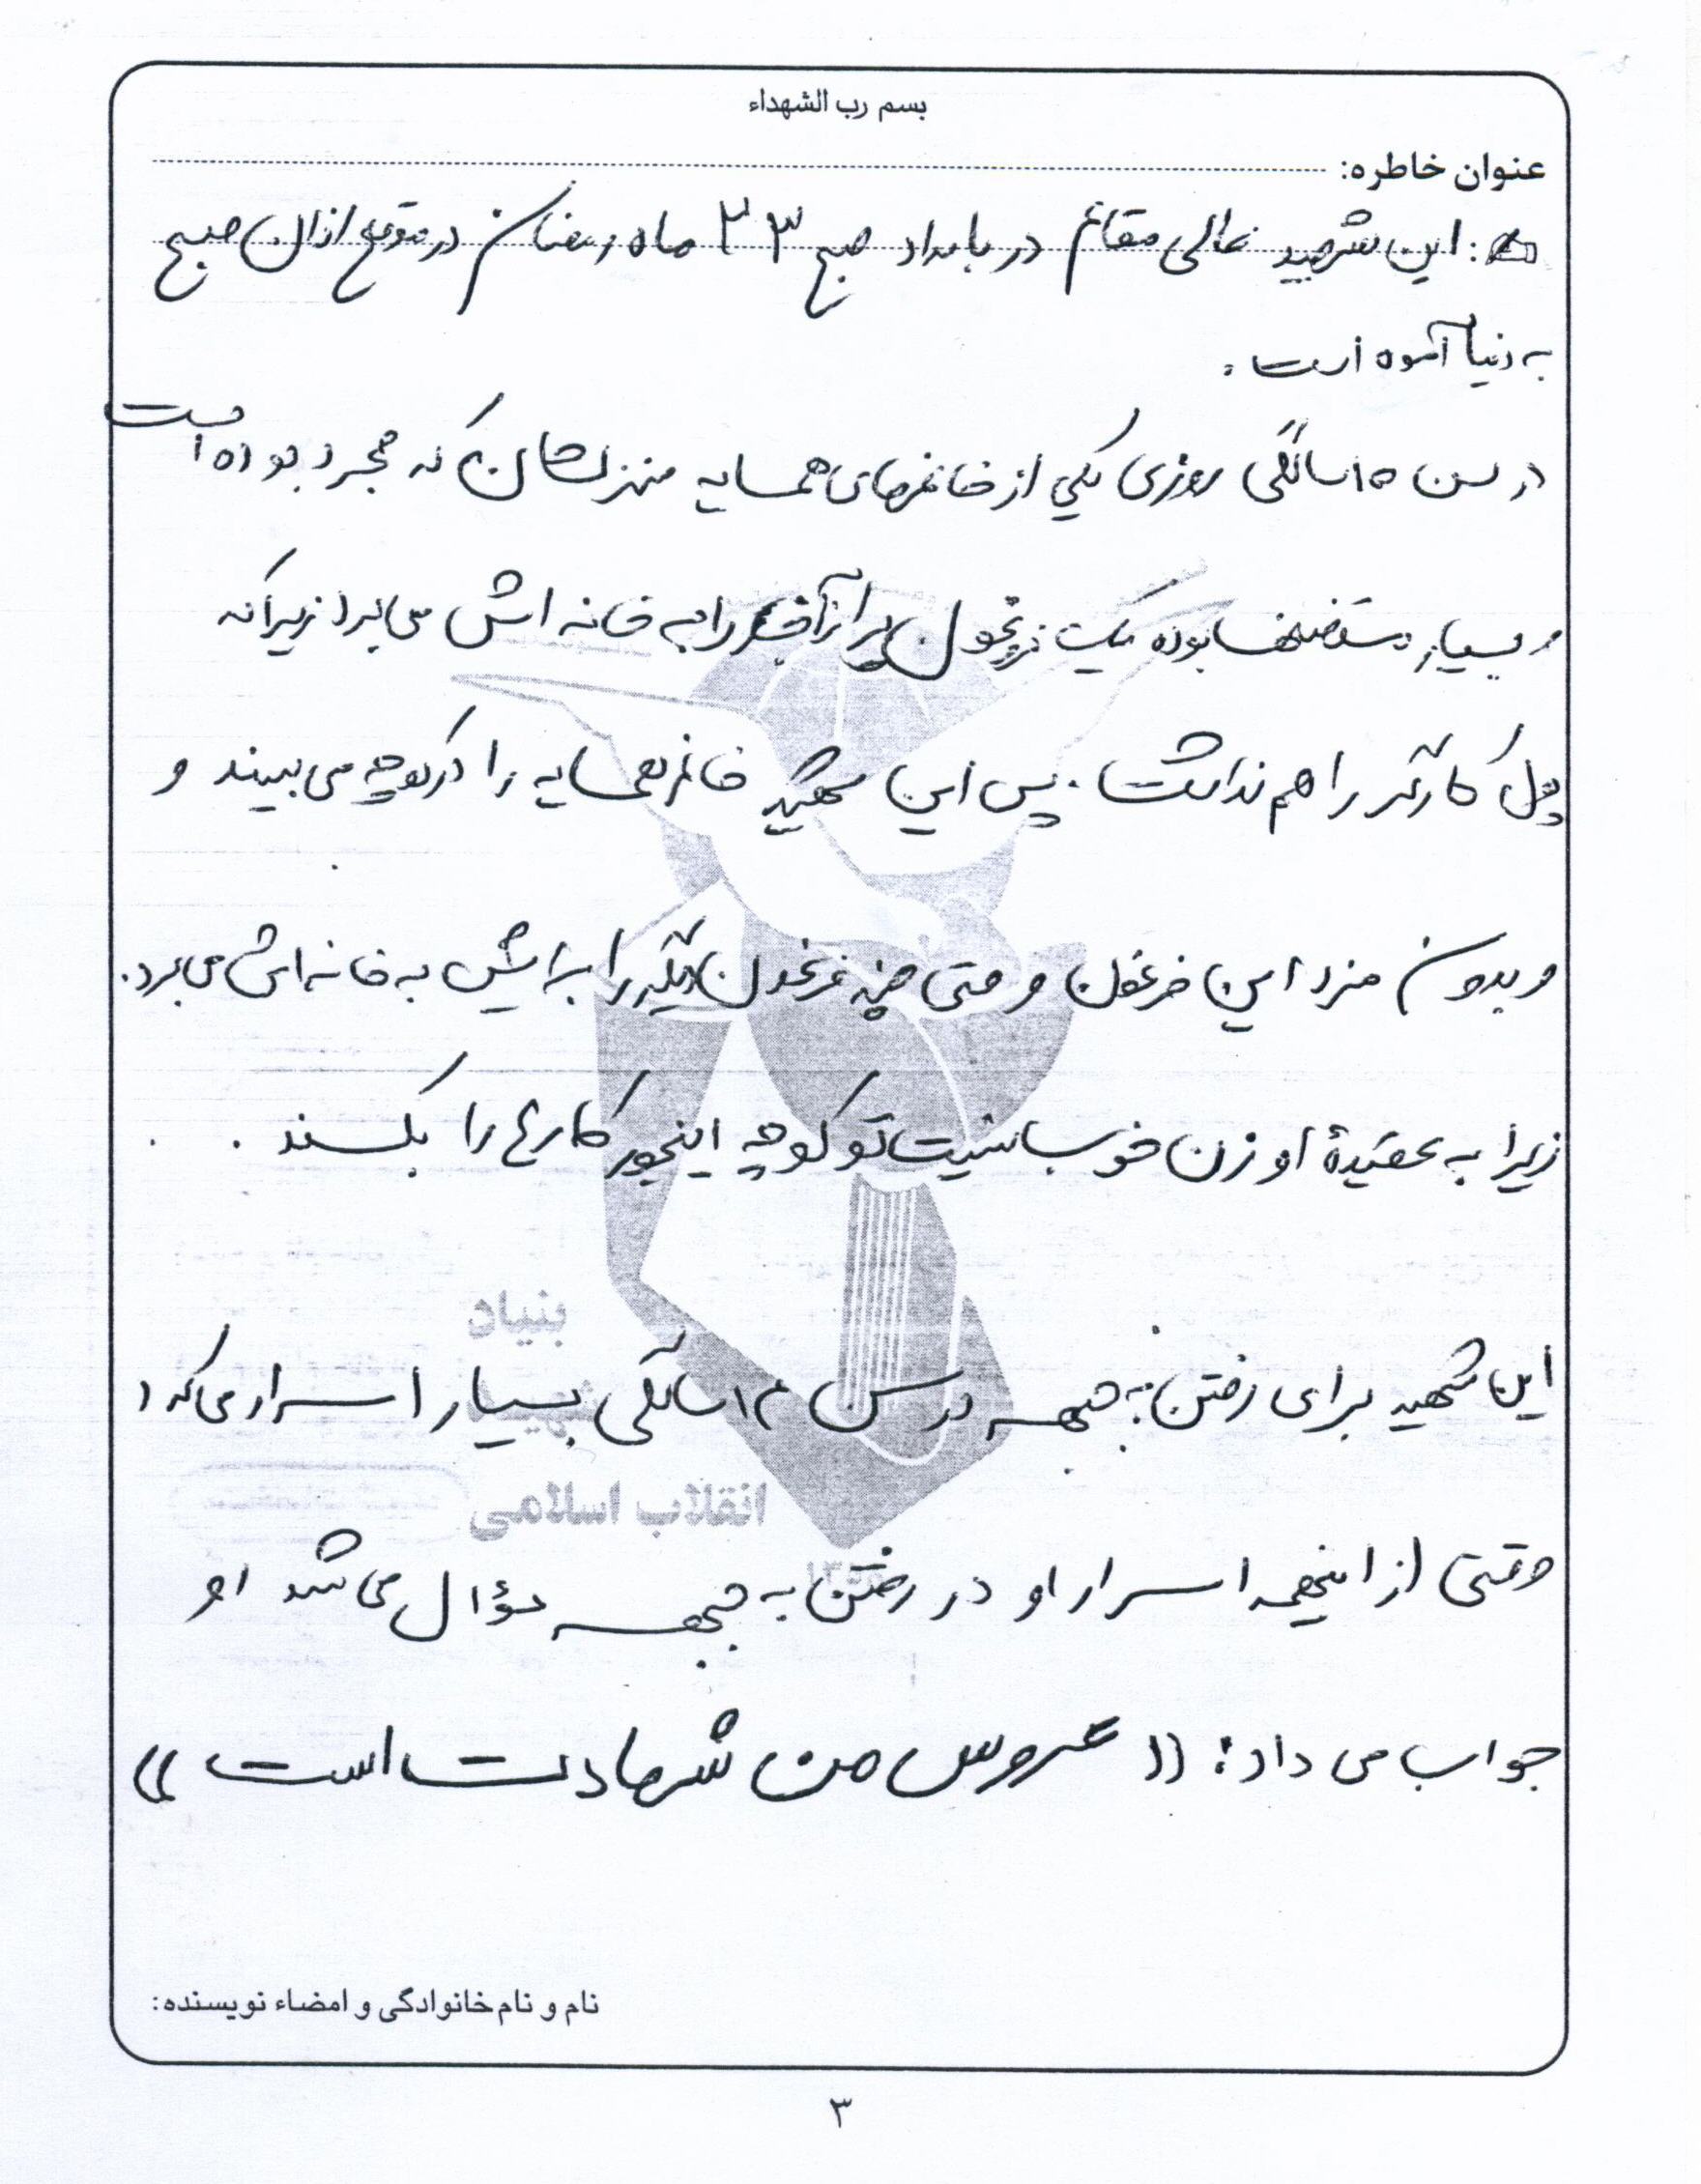 بسم رب الشهداء
عنوان خاطره:
این شهید عالی مقام در بامداد صبح ۲۳ ماه رمضان در موقع اذان صبح
به دنیا آمده است.
در سن ۱۵ سالگی روزی یکی از خانمهای همسایه منزلشان که مجرد بوده است
و بسیار مستضعف بوده یک فرغون پر از آجر را به خانه اش می برد زیرا که
پول کارگر را هم نداشت. پس این شهید خانم همسایه را در کوچه می بیند و
و بدون مزد این فرغون و حتی چند فرغون دیگر را برایش به خانه اش می برد.
زیرا به عقیدهٔ او زن خوب نیست تو کوچه اینجور کارها را بکند.
این شهید برای رفتن به جبهه در سن ۱۴ سالگی بسیار اسرار می کرد
وقتی از اینهمه اسرار او در رفتن به جبهه سؤال می شد او
جواب می داد: (( عروس من شهادت است ))
بنیاد
شهید
انقلاب اسلامی
نام و نام خانوادگی و امضاء نویسنده:
۳